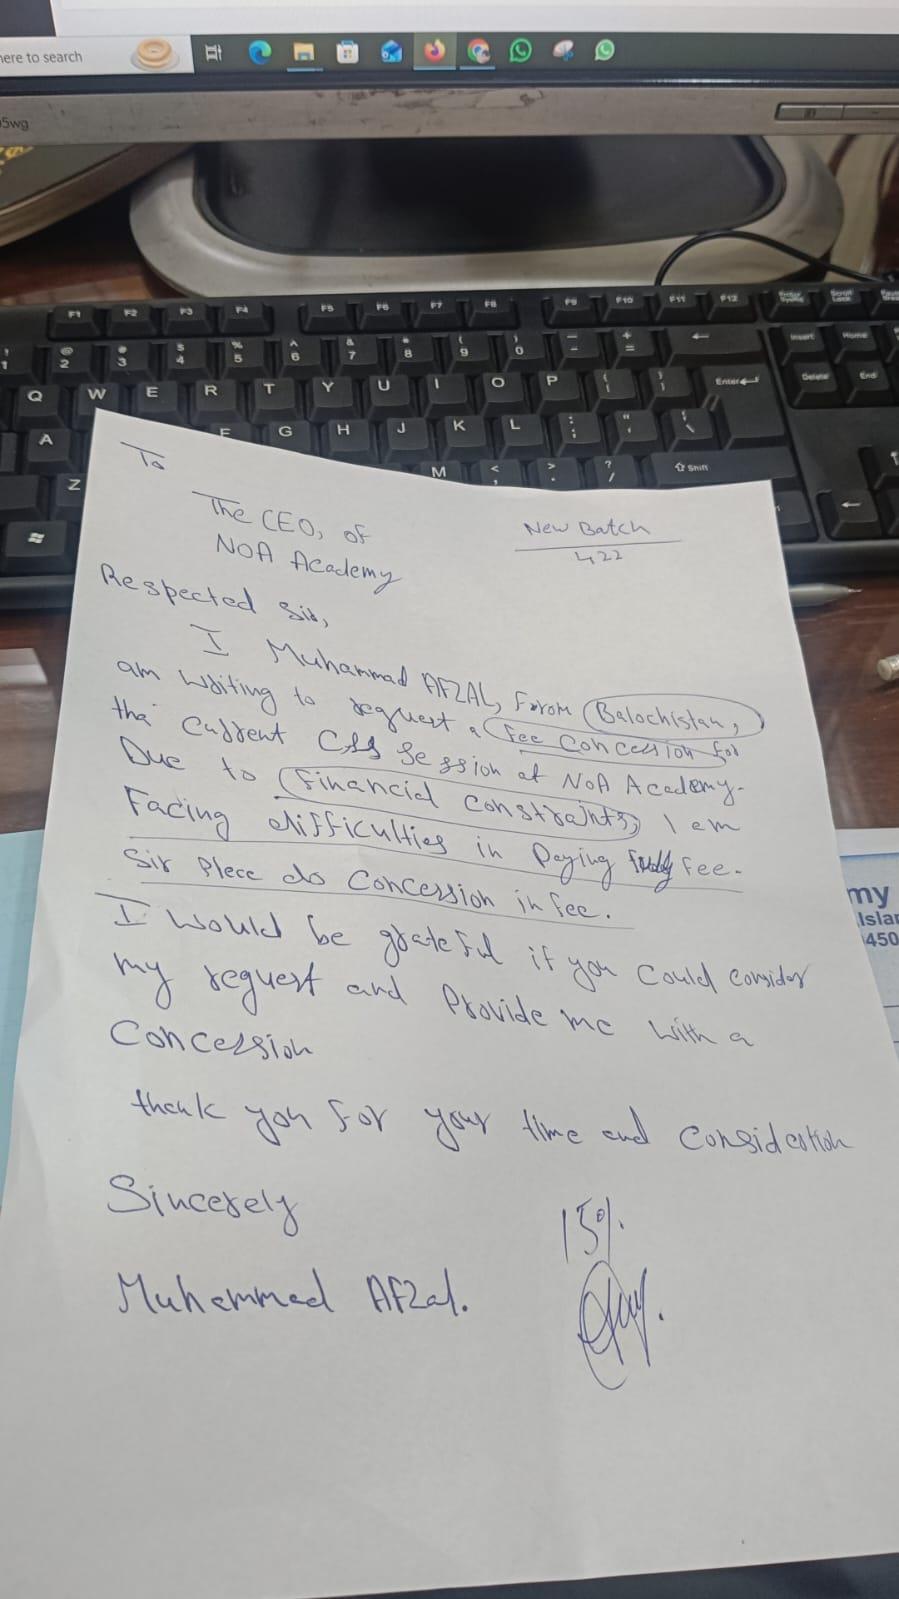 here to search
05wg
F1 F2 F3 F4 F5 F6 F7 F8 F9 F10 F11 F12
Insert Home
Delete End
Q W E R T Y U I O P
Enter
A F G H J K L
Z M
Shift
To
The CEO, of
NOA Academy
New Batch
422
Respected Sir,
I Muhammad AFZAL, From Balochistan,
am writing to request a Fee Concession for
the Current CSS Session at NOA Academy.
Due to Financial Constraints, I am
Facing difficulties in Paying Fee.
Sir Plece do Concession in fee.
I would be grateful if you Could Consider
my request and Provide me with a
Concession
thank you For your time and
Sincerely
Muhammad Afzal.
15%
my
Islam
450